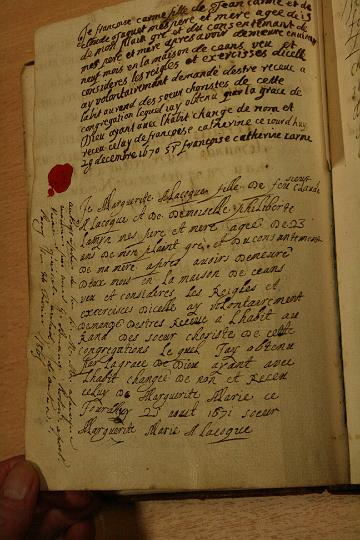 Je françoise carme fille de Jean carme et de
claude jaquet mes pere et mere agee de 15
de mon plain gre et du consentement de
mes pere et mere apres avoir demeure environ
neuf mois en la maison de ceans veu et
consideres les reigles et exercisses dicelle
ay volontairement demandé destre receue a
labit au rend des soeur choristes de cette
congregation lequel iay obtenu par la grace de
Dieu ayant avec labit change de nom et
receu celuy de françoise catherine ce iourdhuy
29 decembre 1670 Sr françoise catherine carme
Je Marguerite Alacoque fille de feu sieur Claude
Alacoque et de Demoiselle philiberte
Lamyn mes pere et mere agee de 23
ans de mon plaint gre et du consantement
de ma mere apres avoir demeuré
Deux mois en la maison de ceans
veu et considerés les Reigles et
exercisses dicelle ay volontairement
Demandé destres Receue a Lhabit au
Rand des soeur choriste de cette
congregations Le quel Jay obtenu
par la grace de Dieu ayant avec
Lhabit changee de non et Receu
celuy de Marguerite Marie ce
Jourdhuy 25 aout 1671 soeur
Marguerite Marie Alacoque